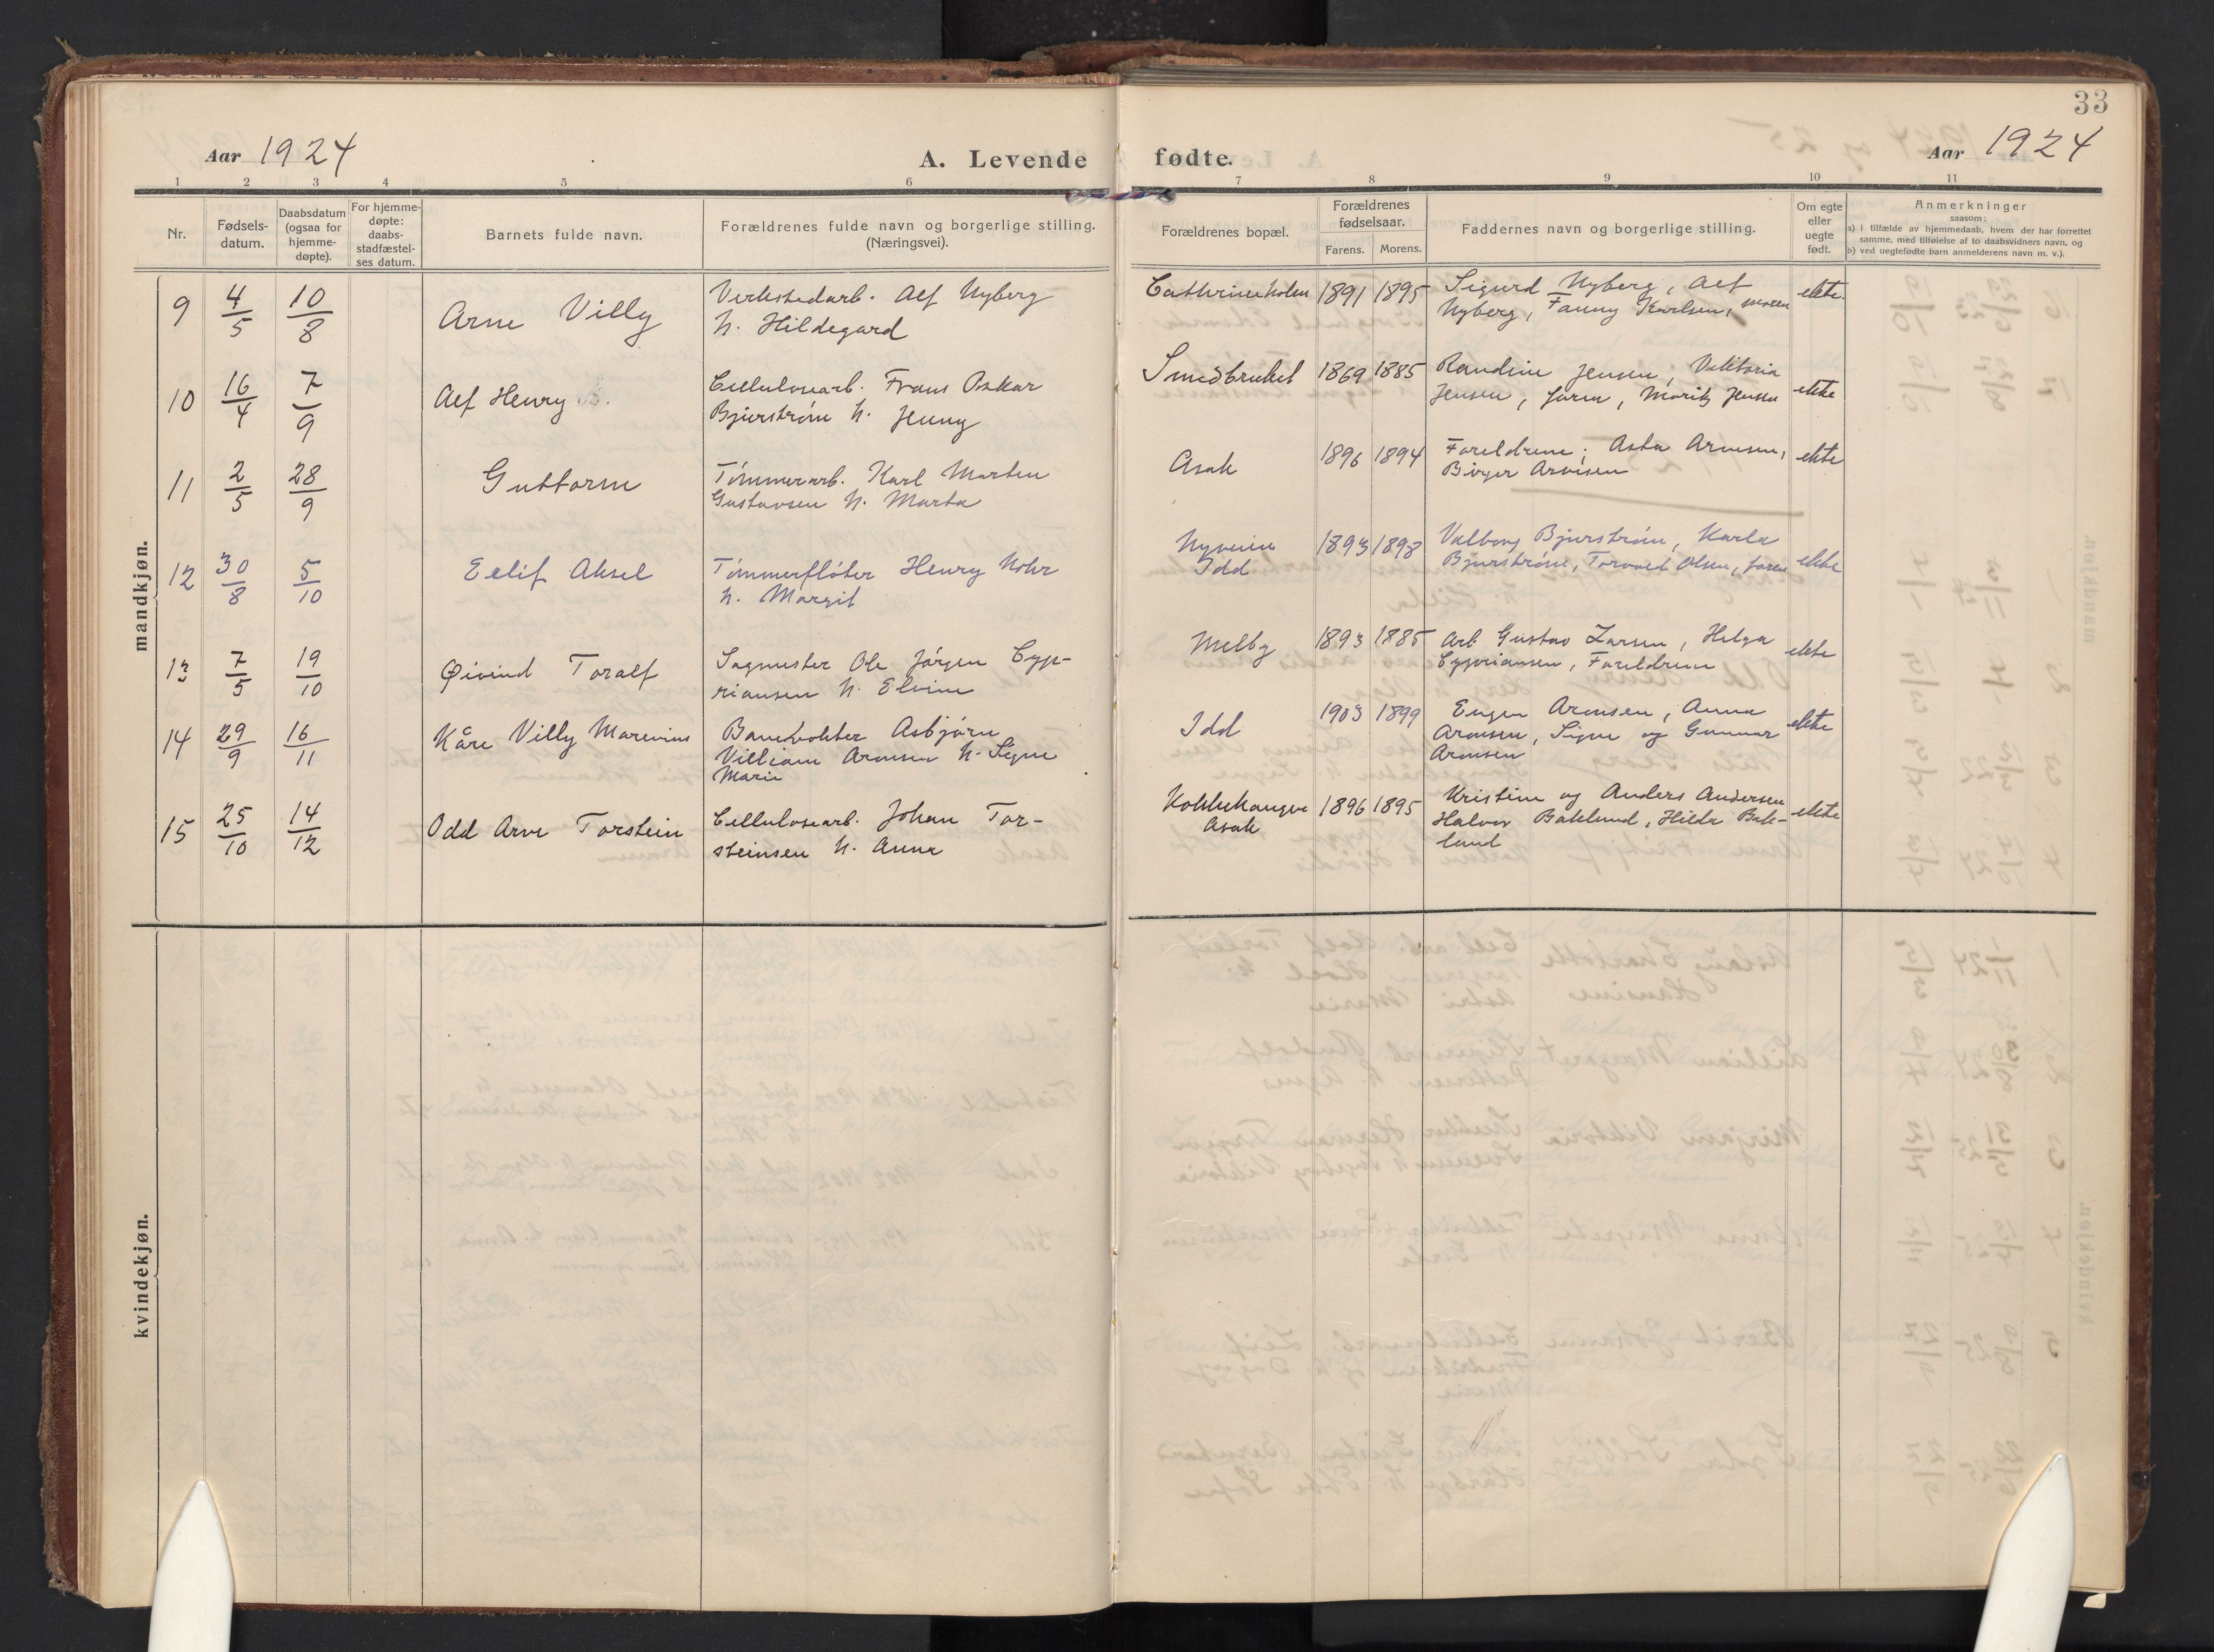 33
Aar 1924
A. Levende fødte.
Aar 1924
1 2 3 4 5 6 7 8 9 10 11
Nr.
Fødsels-
datum.
Daabsdatum
(ogsaa for
hjemme-
døpte).
For hjemme-
døpte:
daabs-
stadfæstel-
ses datum.
Barnets fulde navn.
Forældrenes fulde navn og borgerlige stilling.
(Næringsvei).
Forældrenes bopæl.
Forældrenes
fødselsaar.
Farens. Morens.
Faddernes navn og borgerlige stilling.
Om egte
eller
uegte
født.
Anmerkninger
saasom:
a) i tilfælde av hjemmedaab, hvem der har forrettet
samme, med tilføielse af to daabsvidners navn, og
b) ved uegtefødte barn anmelderens navn m. v.).
mandkjøn.
9 4/5 10/8 Arne Villy
Verkstedarb. Alf Nyberg
h. Hildegard
Cathrineholm 1891 1895
Sigurd Nyberg, Alf
Nyberg, Fanny Karlsen, moren
ekte.
10 16/4 7/9 Alf Henry
Cellulosearb. Frans Oskar
Bjurstrøm h. Jenny
Smedbruket 1869 1885
Randine Jensen, Viktoria
Jensen, faren, Moritz Jensen
ekte
11 2/5 28/9 Guttorm
Tømmerarb. Karl Marten
Gustavsen h. Marta
Asak 1896 1894
Foreldrene, Asta Arvesen,
Birger Arvisen
ekte
12 30/8 5/10 Eilif Aksel
Tømmerfløter Henry Mohr
h. Margit
Nyveien
Idd
1893 1898
Valborg Bjurstrøm, Karla
Bjurstrøm, Torvald Olsen, faren
ekte
13 7/5 19/10 Øivind Toralf
Sagmester Ole Jørgen Cyp-
riansen h. Elvine
Melby 1893 1885
Arb Gustav Larsen, Helga
Cypriansen, Foreldrene
ekte
14 29/9 16/11 Kåre Villy Marenius
Banevokter Asbjørn
Villiam Aronsen h. Signe
Marie
Idd 1903 1899
Eugen Aronsen, Anna
Aronsen, Signe og Gunnar
Aronsen
ekte
15 25/10 14/12 Odd Arve Torstein
Cellulosearb. Johan Tor-
steinsen h. Anna
Asak
1896 1895
Kristine og Anders Andersen
Halvor Baklund, Hilda Bak-
lund
ekte
kvindekjøn.